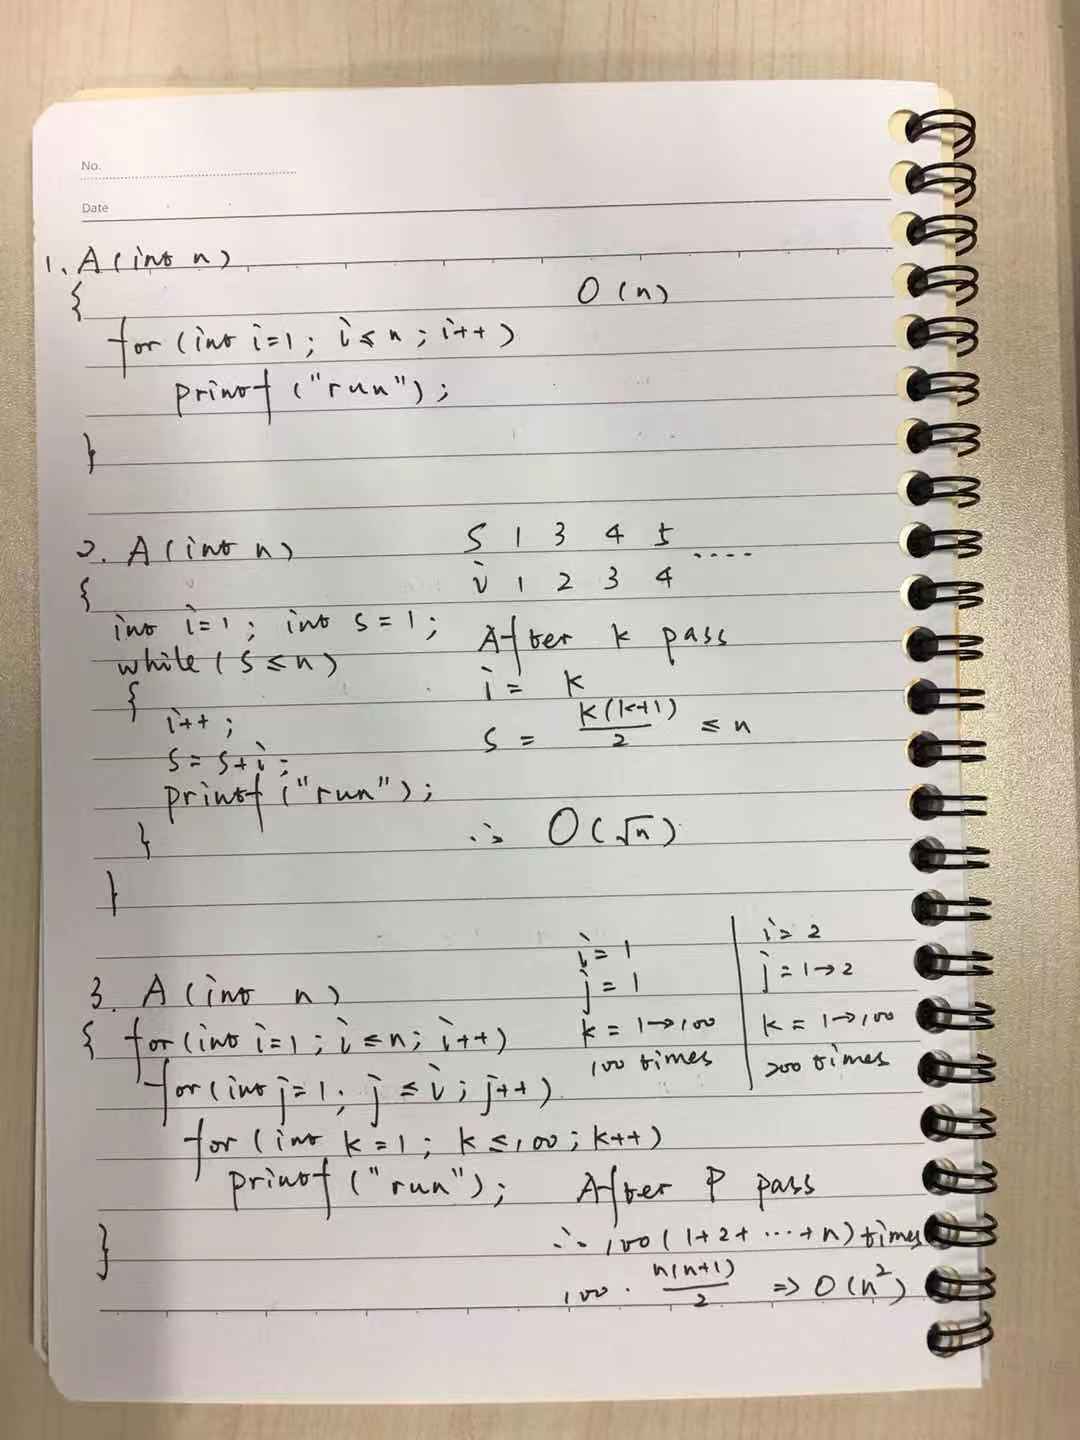 No.
Date
1. A (int n)
{
O (n)
for (int i=1; i≤n; i++)
printf ("run");
}
2. A (int n)
{
int i=1; int s=1;
while (s≤n)
{
i++;
s= s+i;
printf ("run");
}
}
S 1 3 4 5 ....
i 1 2 3 4
After k pass
i = k
S = k(k+1)/2 ≤ n
∴ O(√n)
3. A (int n)
{ for (int i=1; i≤n; i++)
for (int j=1; j≤i; j++)
for (int k=1; k≤100; k++)
printf ("run");
}
i= 1
j= 1
k = 1→100
100 times
i= 2
j = 1→2
k = 1→100
200 times
After P pass
∴ 100 (1+2+ ... +n) times
100 · n(n+1)/2 => O(n²)